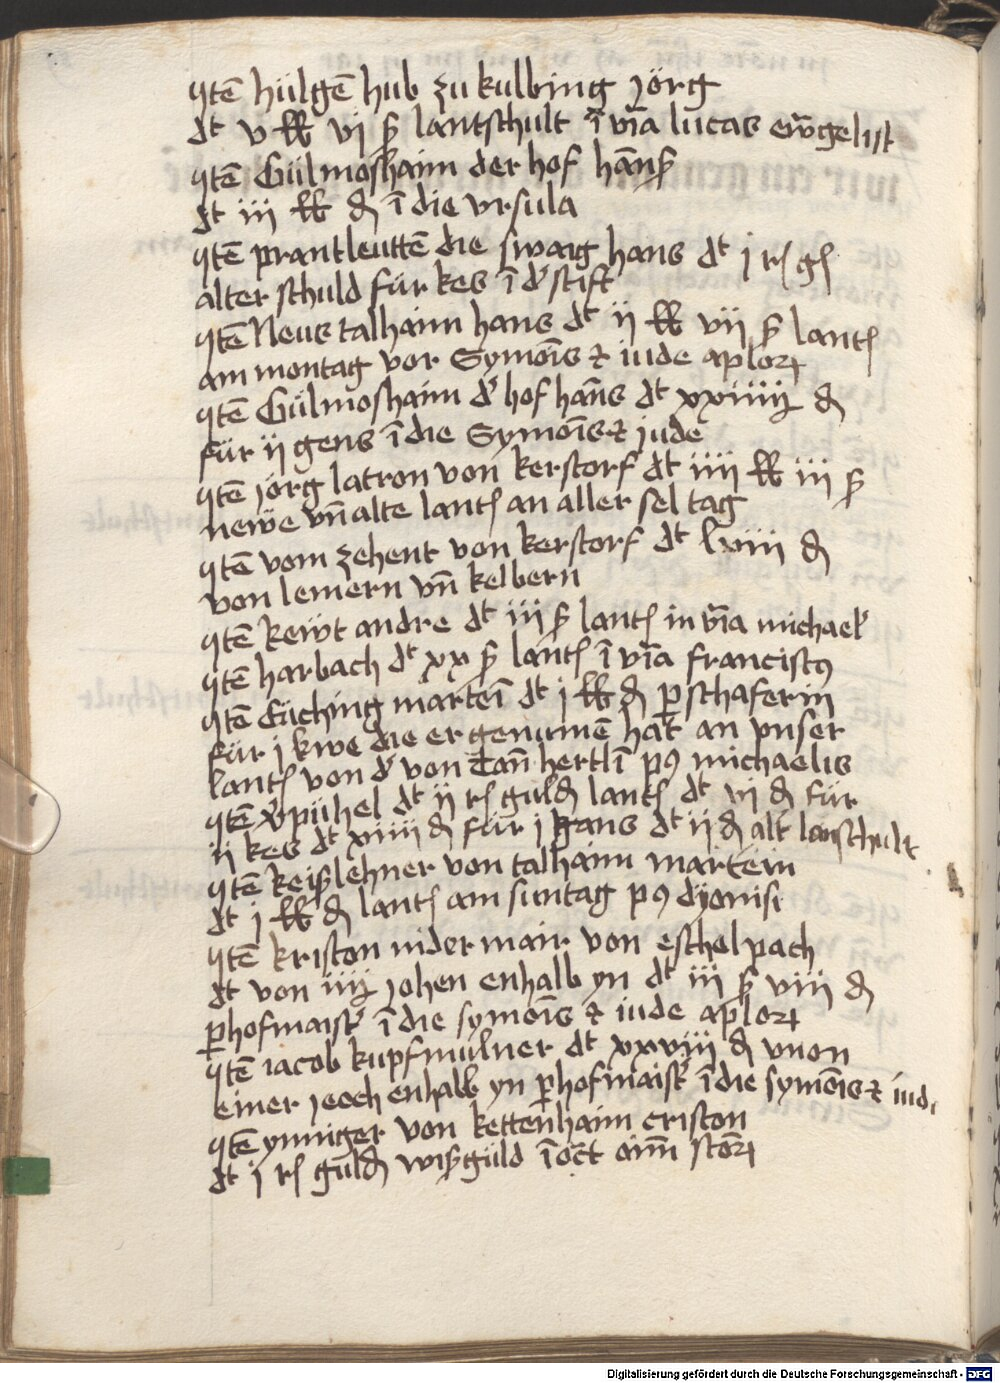 Itē hülgē hub zu kulbing jörg
dt v ℔ vj ß lantschult ī vīa lucas ewāgelist
Itē Gülmoshaim der hof hāns
dt iij ℔ ₰ ī die vrsula
Itē prantleuttē die swaig hans dt j r gl
alter schuld für kes ī d' stift
Itē Neustalhaim hans dt ij ℔ vij ß lantſ
am montag vor Symōis et iude aploꝝ
Itē Gülmoshaim d' hof hāns dt xxiiij ₰
für ij gens ī die Symōis et jude
Itē jörg latron von kerstorf dt iiij ℔ iij ß
newe vn̄ alte lantſ an aller sel tag
Itē vom zehent von kerstorf dt lviij ₰
von lemern vn̄ kelbern
Itē kewt andre dt iij ß lantſ in vīa michael'
Itē harbach dt xx ß lantſ ī vīa franciscꝰ
Itē Eüching marteī dt j ℔ ₰ ꝑ schaferin
für j kwe die er genumē hat an vnser
lantſ von d' von Tan̄ hertlī pꝰ michaelis
Itē pühel dt ij r guld lantſ dt vj ₰ für
ij kes dt xiiij ₰ für j gans dt ij ₰ alt lanschult
Itē keißlehner von talhaim martein
dt j ℔ ₰ lantſ am suntag pꝰ dyonisi
Itē kriston nidermair von eschelpach
dt von iiij johen enhalb yn dt iij ß viij ₰
ꝑ hofmaist' ī die symōis et iude aploꝝ
Itē iacob kupfmülner dt xxviij ₰ vnon
einer jeoch enhalb yn ꝑ hofmaist' ī die symōis et iude
Itē ynniger von kettenhaim criston
dt j r guld wißgüld ī oct oim̄ sctōꝝ
Digitalisierung gefördert durch die Deutsche Forschungsgemeinschaft - DFG